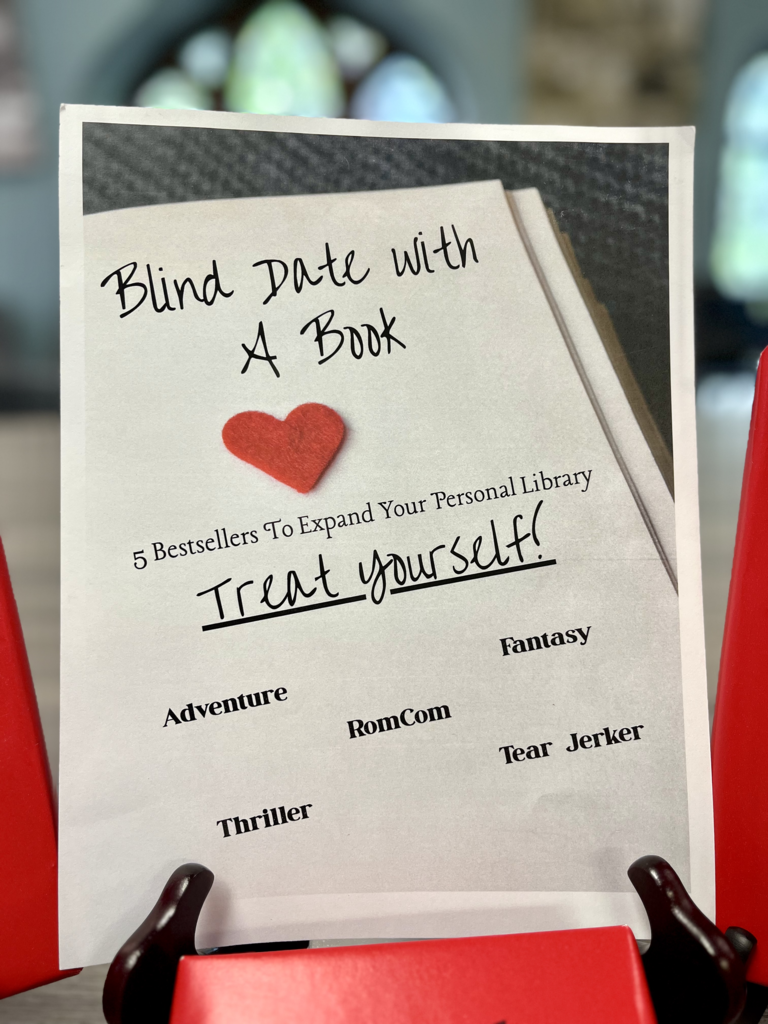 Blind Date with
A Book
5 Bestsellers To Expand Your Personal Library
Treat yourself!
Fantasy
Adventure
RomCom
Tear Jerker
Thriller